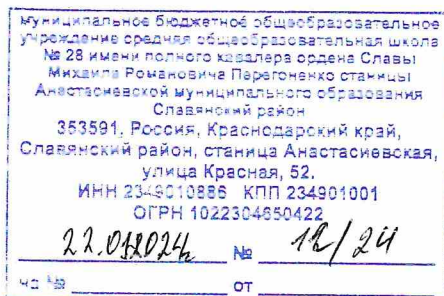 муниципальное бюджетное общеобразовательное
учреждение средняя общеобразовательная школа
№ 28 имени полного кавалера ордена Славы
Михаила Романовича Перегоненко станицы
Анастасиевской муниципального образования
Славянский район
353591, Россия, Краснодарский край,
Славянский район, станица Анастасиевская,
улица Красная, 52.
ИНН 2349010886 КПП 234901001
ОГРН 1022304650422
№ 12/24
на № от